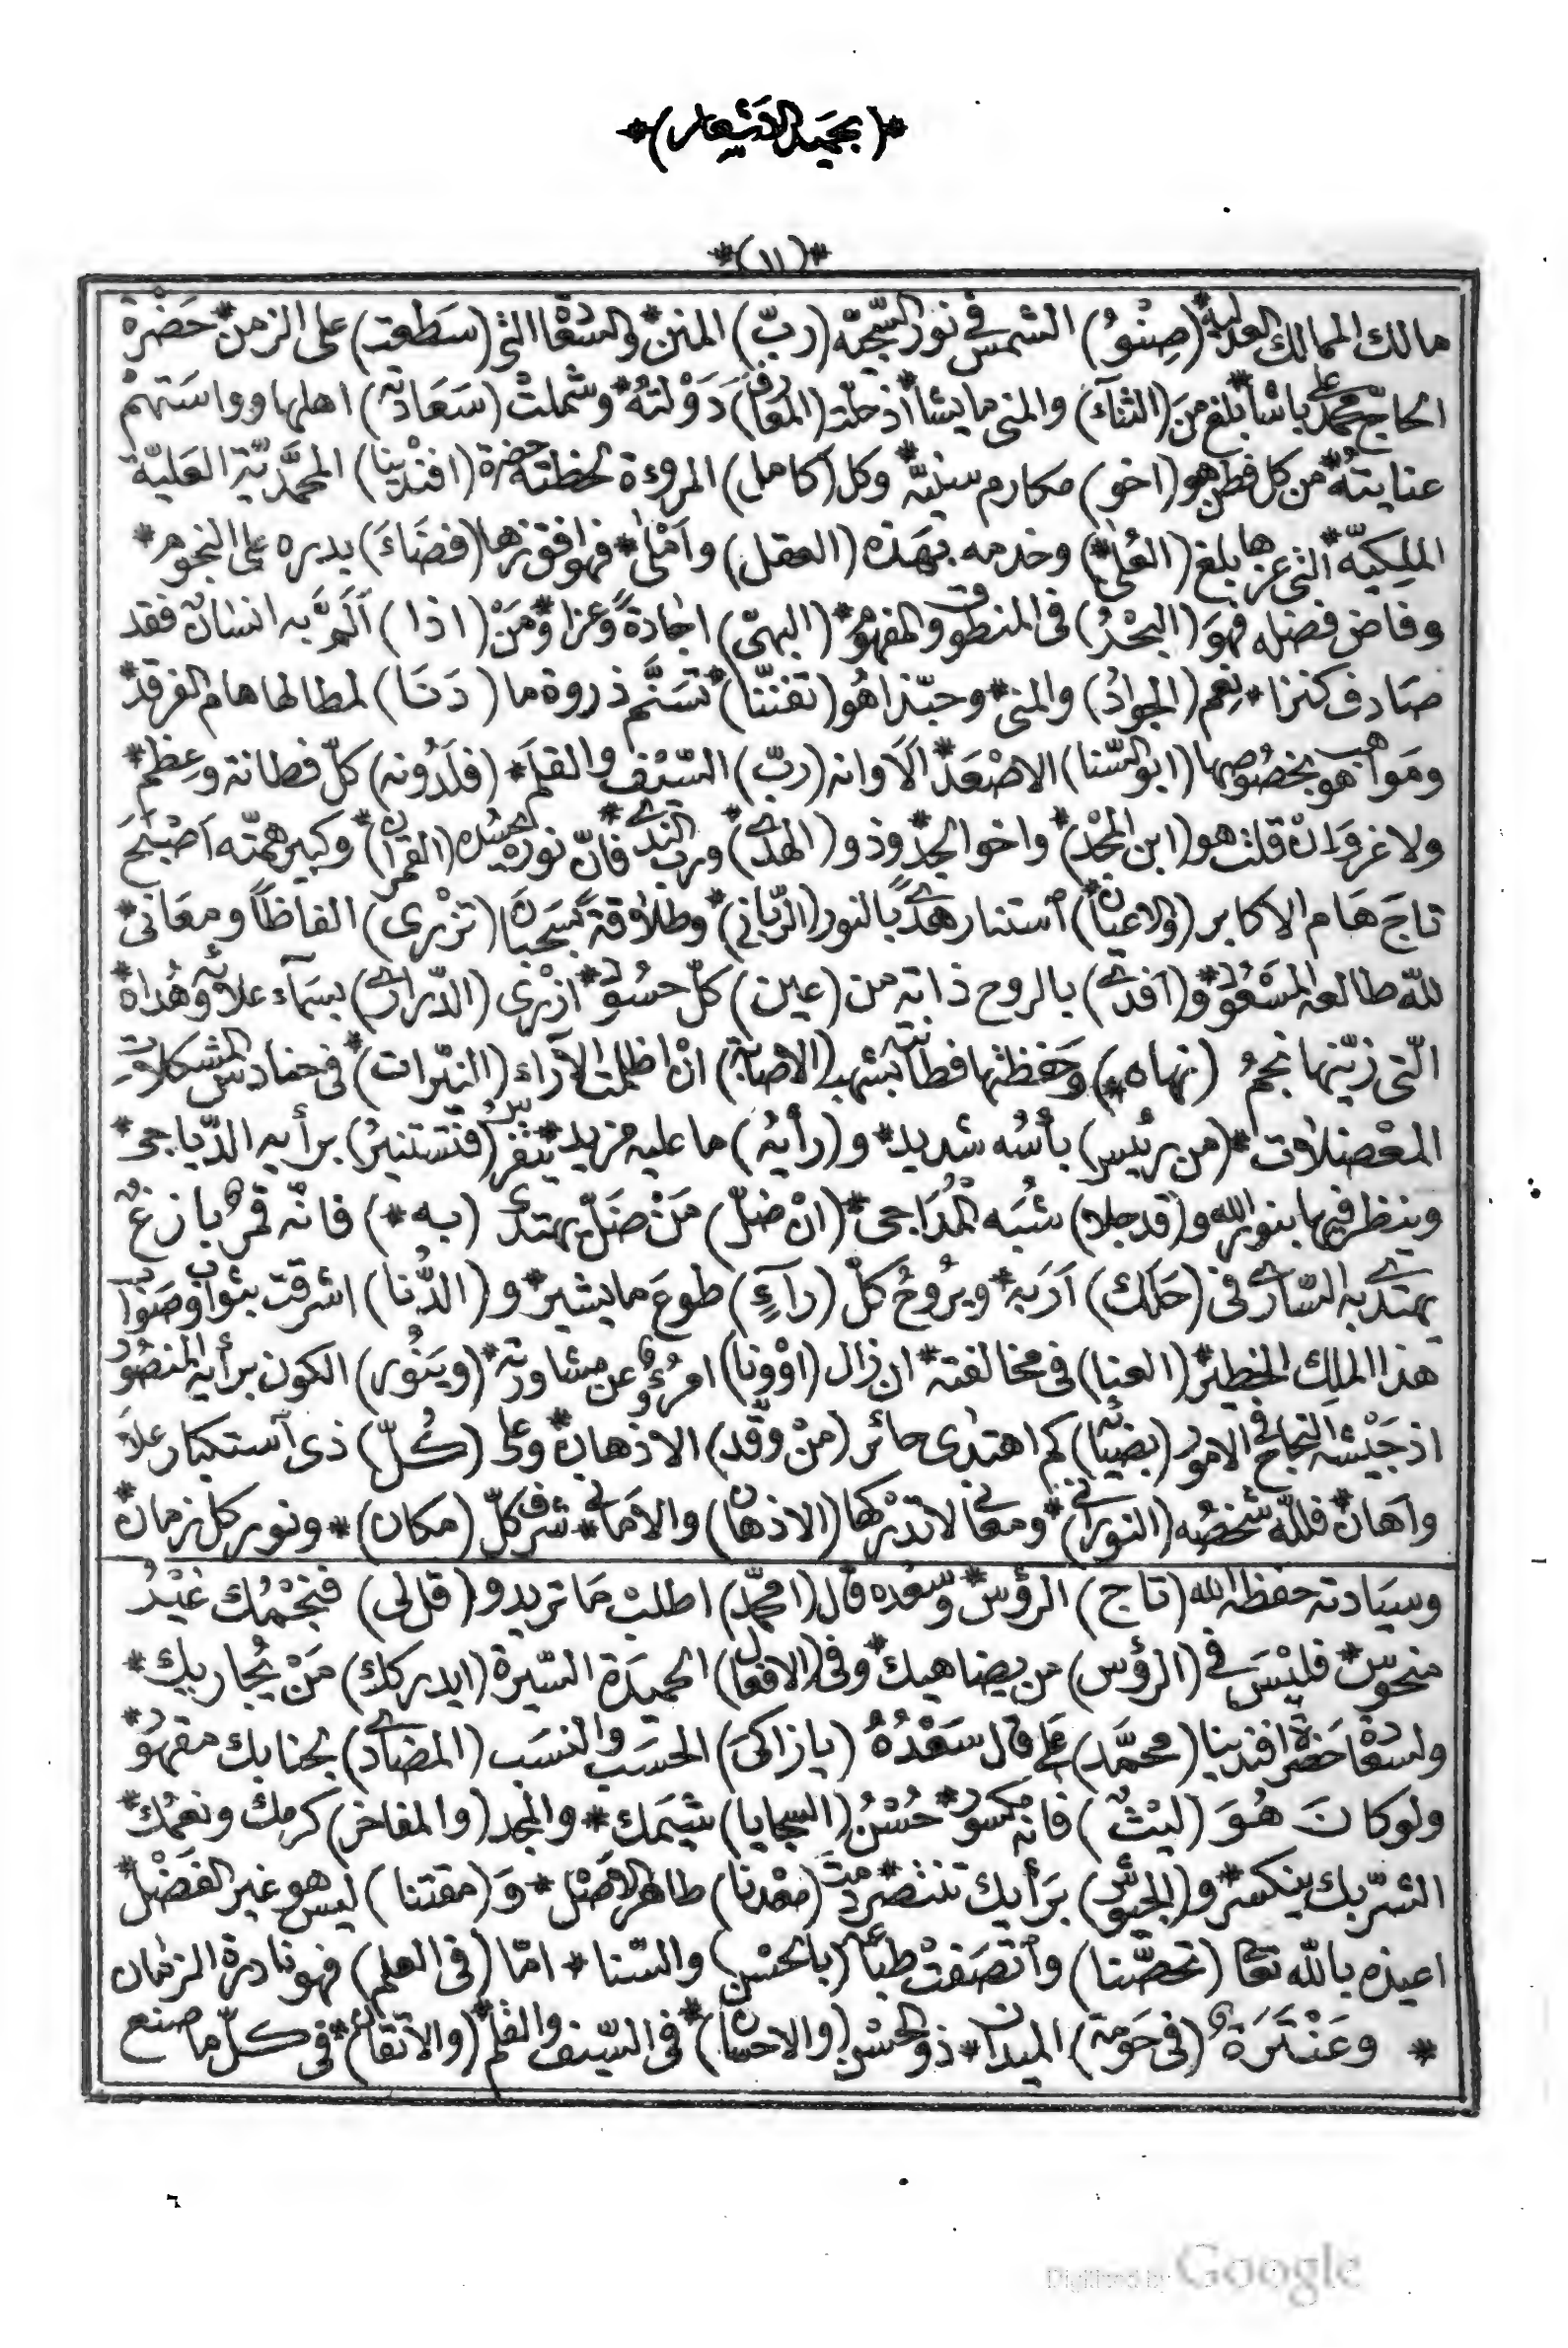 *(بحميد الاشعار)*
*(١١)*
مالك الممالك العدلية* (صِنْوُ) الشمس فى نور السّجيّه (ربّ) المنن* والسّعادة التى (سَطَعت) على الزمن* حَضْرة
الحاجّ محمد على باشا* بلغ مَنَ (الثناءَ) والمنى ما يشا* اذ حلّت (المعارفَ) دَوْلتهُ* وشملتْ (سَعَادته) اهلها وواسَتهمْ
عنايتهُ* من كل فطن هو (اخو) مكارم سنيّه* وكل (كامل) المروءة لحظته حضرة (افندينا) المحمَّديّة العَليّة
الملِكيّه* التى عزها بلغ (العُلى*) وخدمه بهَذه (العقل) وأمْلى* فهو افق زها (فضَاءَ) بدره على النجوم*
وفاض فضله فهوَ (البحْرُ) فى المنطوق والمفهوم* (البهىّ) اجادةً وعزا* ومَنْ (اذا) اَلَمَّ به انسانٌ فقد
صَادف كنزا* نِعْم (الجوادُ) والمنى* وحبّذا هُو (تفنّنا)* تسَنَّم ذروة ما (دَنَا) لمطالها هام الفرقد*
ومَواهب هو بخصُوصها (ابو السّنا) الاصْعَد* اَلاَ وانه (ربّ) السّيْف والقلَم* (فلَدُونه) كلّ فطانة وعِظم*
ولا غروَ اِنْ قلت هو (ابن المجْد)* واخو الجدّ* وذو (الهدى) وربّ الندى* فانّ نوره يحسُده (القمران)* وكبير همّته اَصْبَحَ
تاجَ هَام الاكابر (والاعيان)* استنار هدىً بالنور (الرّبانى)* وطلاقة سَحْبان (تزْرى) الفاظاً ومعَانى*
للّه طالعه المسْعُود* و(اَفدى) بالروح ذاته من (عين) كلّ حسُود* ازْرى (الدّرارى) بسَمآء علائه وهُداه*
الّتى زيّنها نجمُ (نهاه*) وحَفظتها فطانته بشهب (الاصابة) انْ اظلمت الآراء (النيّرات)* فى حنادس المشكلاتِ
المعْضلات* (من رئيس) بأسُه شديد* و(رأيهُ) ما عليه مزيد* يتفرّس (فتستنيرُ) برأيه الدّياجى*
وينظر فيها بنور الله و(قد جلا) شُبَه المُدَاجى* (انْ ضلّ) مَنْ ضَلّ يهتدى (به*) فانّه قمرٌ بازغٌ
يهتدى به السّارى فى (حَلَك) اَرَبه* ويرُوحُ كلّ (رآءٍ) طوعَ ما يشير* و(الدُّنا) اشرقت بثواب وصَواب
هذا الملِك الخطير* (العنا) فى مخالفته* ان زال (اوْونا) امرُؤٌ عن مشاورته* (ويَنُور) الكون برأيه المنصُور
اذ جَيْشه النجاح فى الامور* (بضيائه) كم اهتدى حائر (منْ وقّد) الاذهان* وعلى (كُلّ) ذى اَستكبار علاَ
واَهان* فللّه شخصُه (النورانى)* ومعانٍ لا تدْركها (الاذهان) والاَمانى* شرف كلّ (مكان)* ونور كل زمان*
وسيَادته حفظه الله (تاج) الرؤس* وسَعْده قال (امحمّد) اطلبْ مَا تريد و(قل لى) فنجْمُك غيْرُ
منحوس* فليْسَ فى (الرؤس) من يضاهيك* وفى (الافعال) الحميدَة السّيرة (ايدركك) مَنْ يُجاريك*
ولسعَادة حَضرة افندينا (محمَّد) على قال سَعْدُهُ (يا زاكىَ) الحسَب والنسَب (المضادى) بجنابك مقهُور*
ولو كانَ هُوَ (ليْثٌ) فانه مكسور* حُسْنُ (السجايا) شيَمك* والمجد (والمفاخر) كرمك ونعمُك*
الشرّ بك ينكسر* و(الجيوش) برَأيك تنتصر* دمتَ (معْدنا) طاهر الاصْل* وَ(مقتنا) ليس هو غير الفَضْل*
اعيذه باللّه تعَا (تحصّنا) واَتصَفتْ طباعه (بالحسْن) والسّنا* امّا (فى العلم) فهو نادرة الزمان
* وعَنْتَرَةٌ (فى حَومة) الميدان* ذو الحسْن (والاحسان)* فى السّيف والقلم* (والاتقان)* فى كلّ ما صنع
Digitized by Google